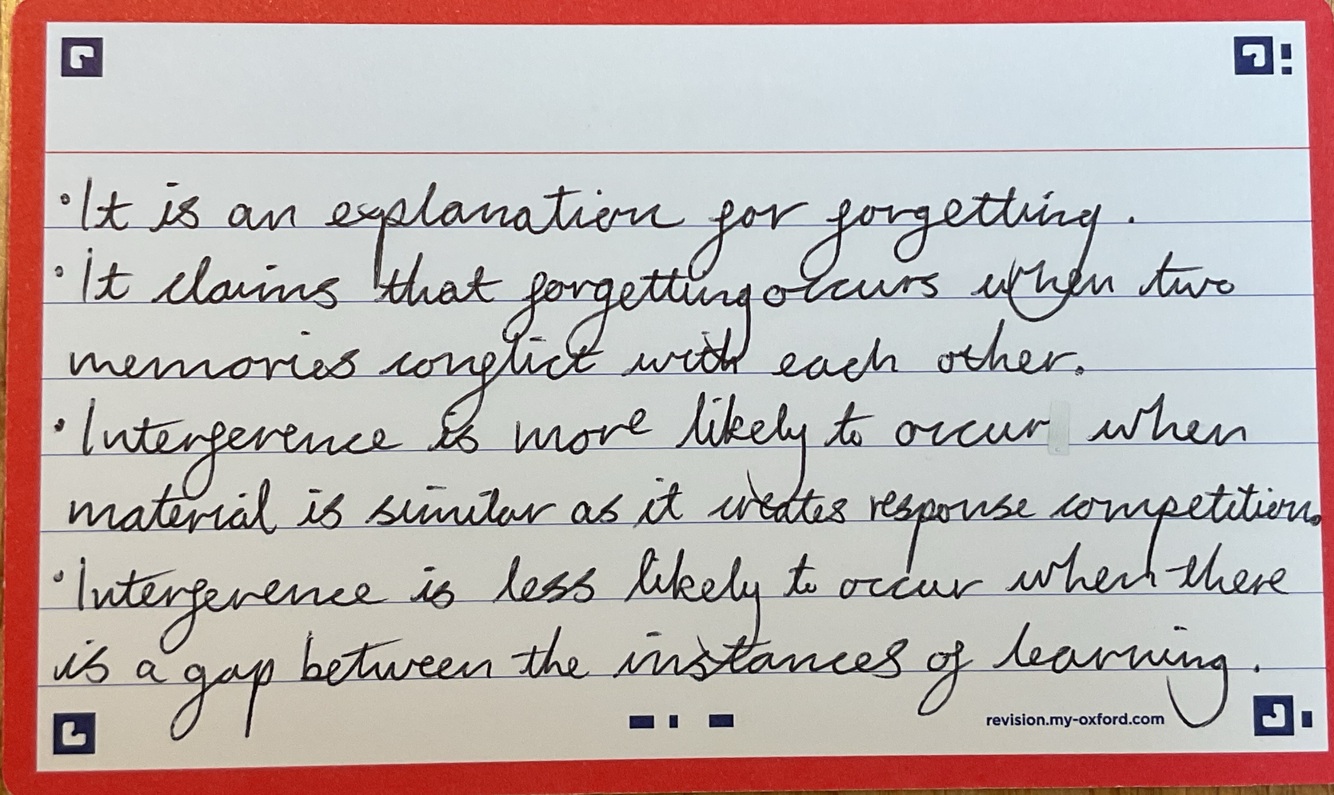 •It is an explanation for forgetting.
•It claims that forgetting occurs when two
memories conflict with each other.
•Interference is more likely to occur when
material is similar as it creates response competition.
•Interference is less likely to occur when there
is a gap between the instances of learning.
revision.my-oxford.com